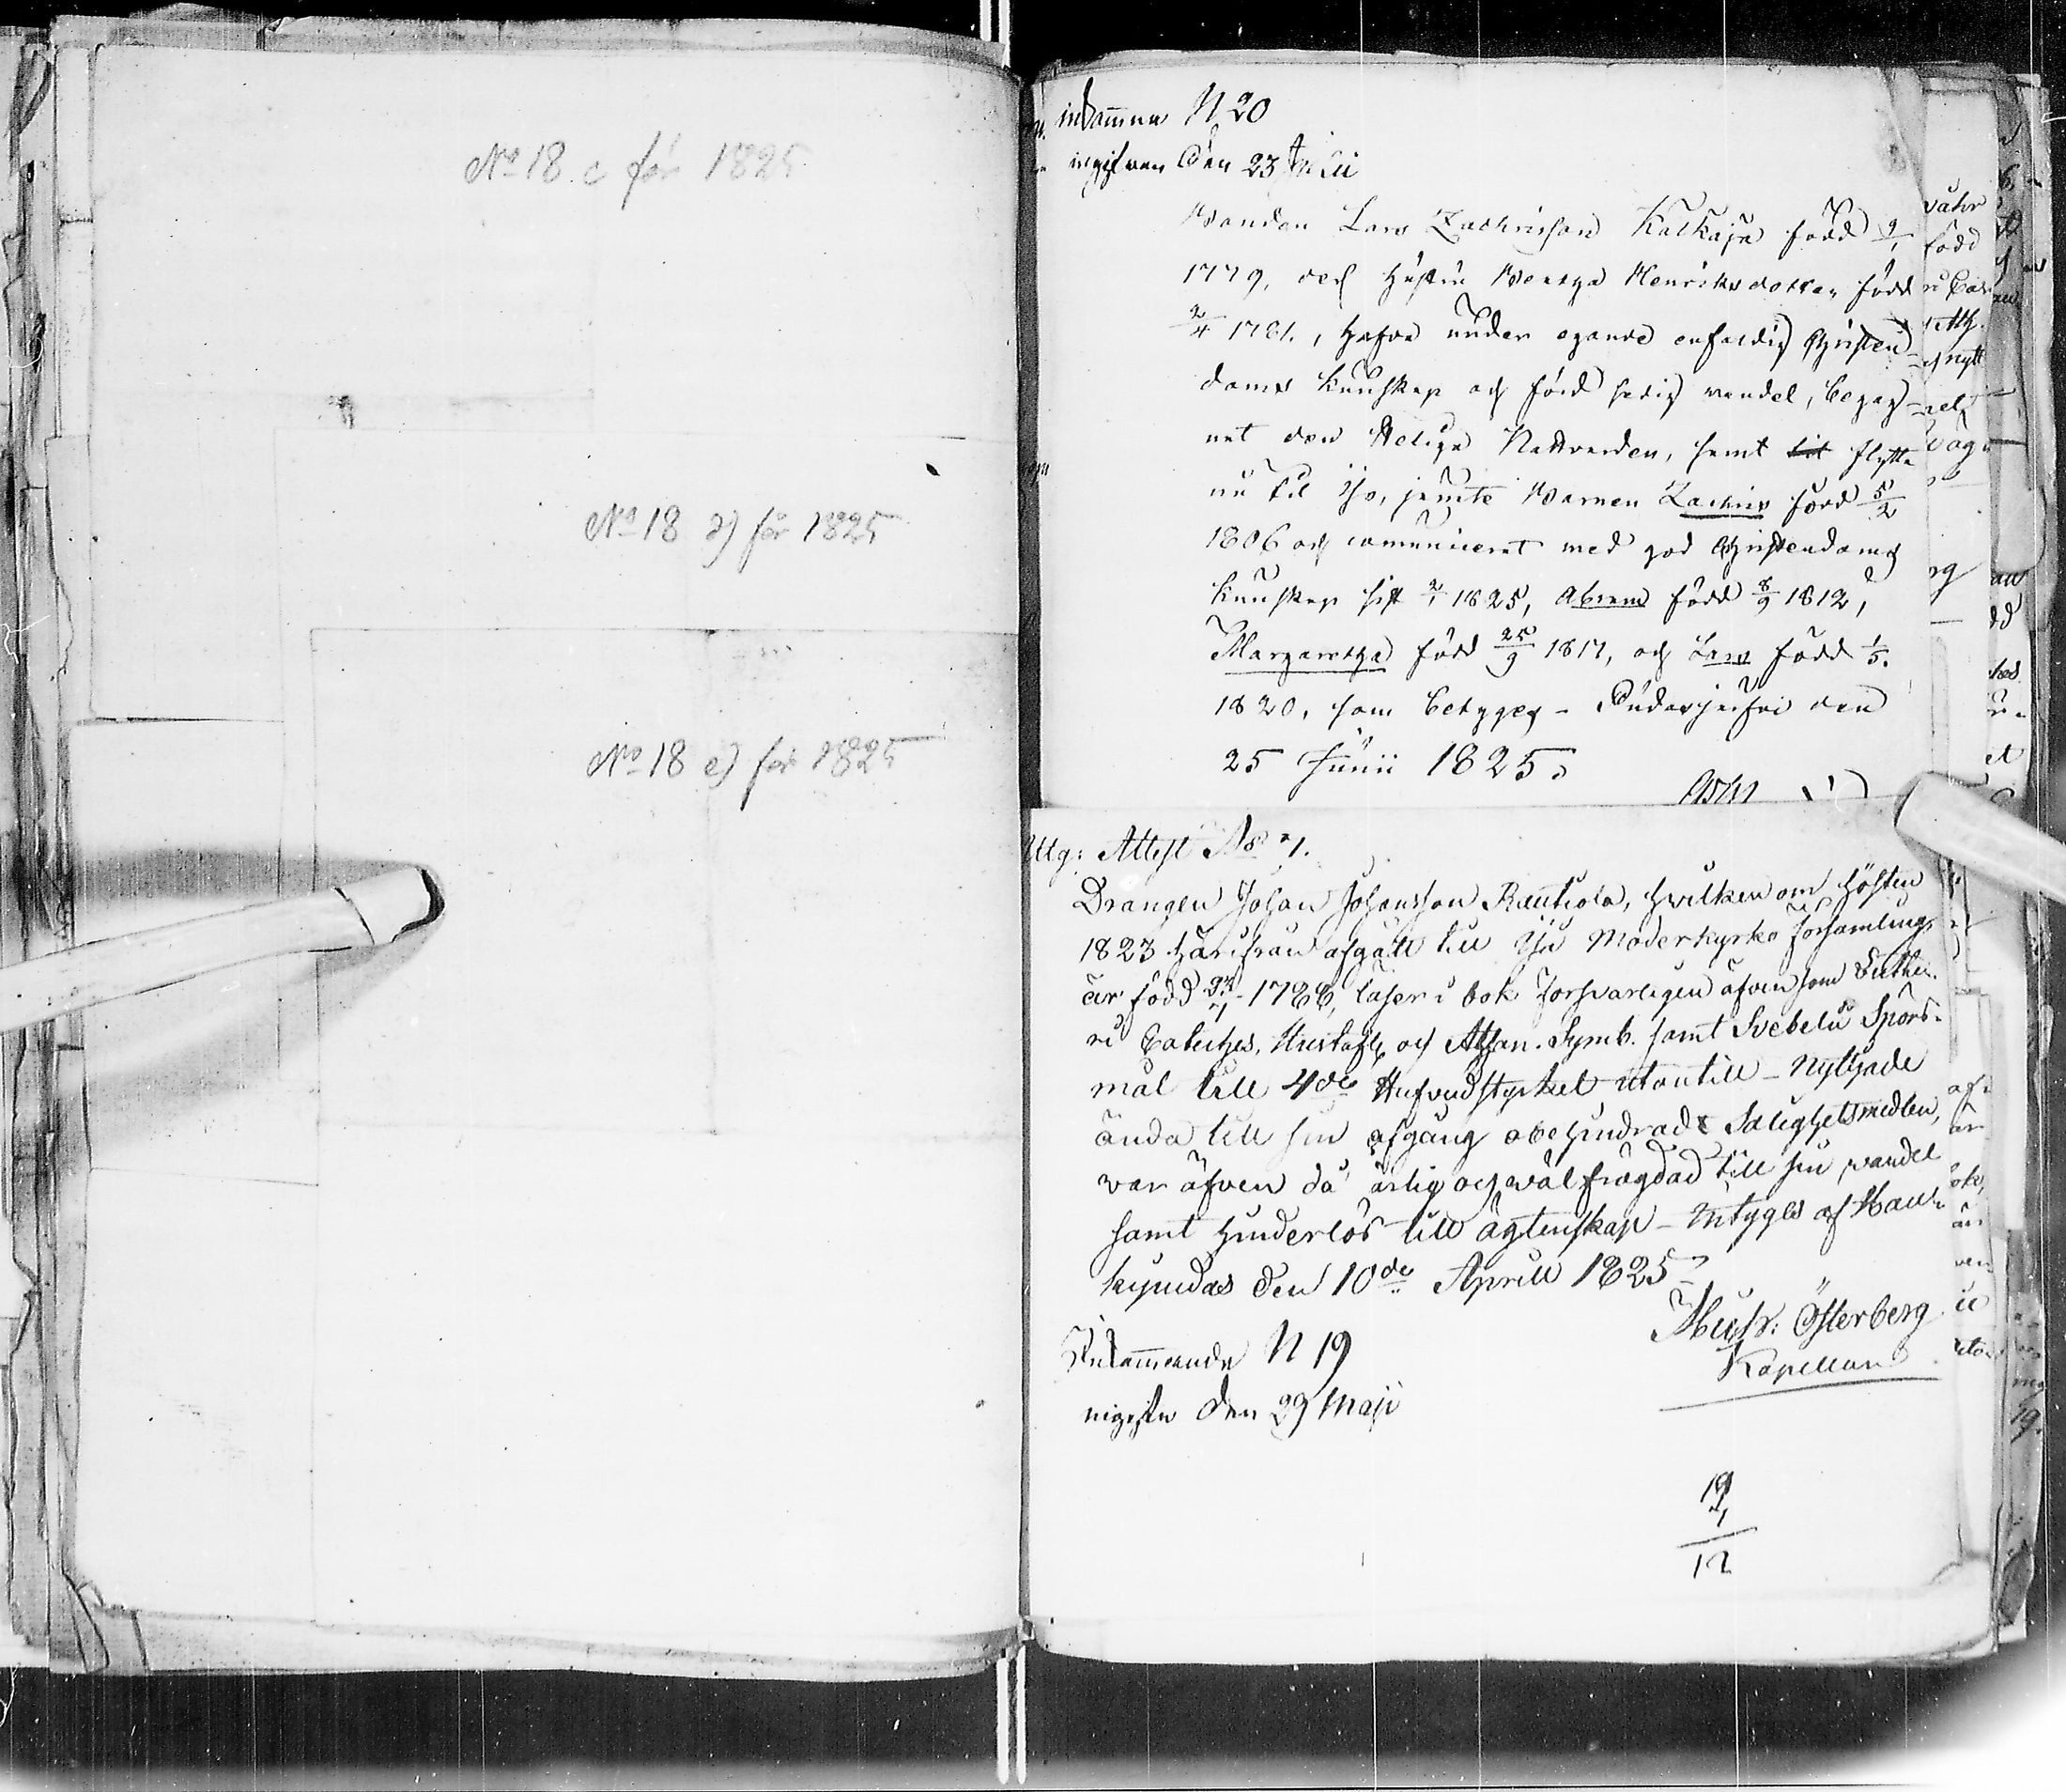 No 18 c för 1825
No 18 d) för 1825
No 18 e) för 1825
inkommen N 20
ingifven den 23
Bonden Lars Zachrisson Kalkaja född 9/1
1779, och Hustru Beatha Henriksdotter, född
2/4 1781., hafva under egande enfaldig Christen-
doms kunskap och förd sedig vandel, begag-
nat den Heliga Nattvarden, samt flytta
nu til Ijo, jemte Barnen Zachris född 5/2
1806 och comunicerat med god Christendoms
kunskap sist 2/1 1825, Abram född 8/9 1812,
Margaretha född 25/9 1817, och Lars född 1/5.
1820, som betygas - Pudasjerfvi den
25 Junii 1825.
Uttg: Attest No 7.
Drängen Johan Johansson Rautiola, hvilken om hösten
1823 härifrån afgått till Ijo Moderkyrko Församling,
är född 1788, läser i bok försvarligen äfvensom Luthe-
ri Cateches, Hustafl. och Athan. Symb. samt Svebelii Spörs-
mål till 4de Hufvudstycket utantill - Nyttjade
ända till sin afgång obehindradt Salighetsmedlen,
var äfven då ärlig och välfrägdad till sin vandel
samt hinderlös till ägtenskap - Intygas af Hau-
kipudas den 10de Aprill 1825
Österberg
Kapellan
Inkommande N 19
ingifn den 29 Maji
19
7
12